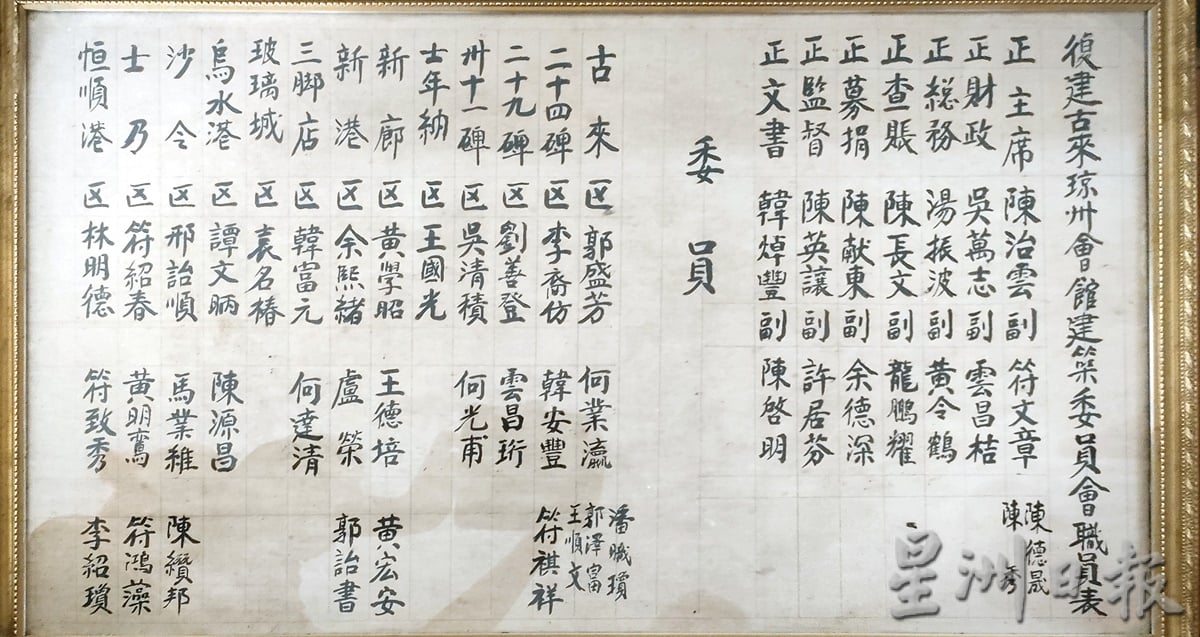 復建古來琼州會館建築委員會職員表
正主席 陳治雲 副 符文章 陳德晟 陳秀
正財政 吳萬志 副 雲昌桔
正総務 湯振波 副 黃令鶴
正查賬 陳長文 副 龍鵬耀
正募捐 陳献東 副 余德深
正監督 陳英讓 副 許居芬
正文書 韓焯豐 副 陳啓明
委員
古來区 郭盛芳 何業瀛 潘職瓊 郭澤富 王順文
二十四碑区 李裔仿 韓安豐 符祺祥
二十九碑区 劉善登 雲昌珩
卅十一碑区 吳清積 何光甫
士年納区 王國光
新廊区 黃學昭 王德培 黃宏安
新港区 余熙緒 盧榮 郭詒書
三脚店区 韓富元 何達清
玻璃城区 袁名椿
烏水港区 譚文昞 陳源昌
沙令区 邢詒順 馬業維 陳纘邦
士乃区 符紹春 黃明鸞 符鴻藻
恒順港区 林明德 符致秀 李紹瓊
星洲日報